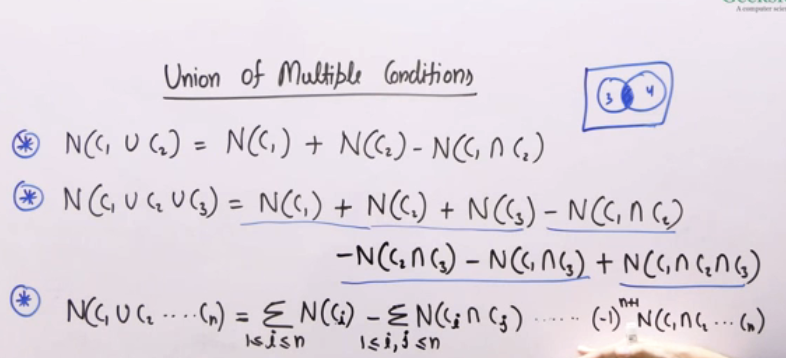 A computer scie
Union of Multiple Conditions
3 4
* N(C₁ ∪ C₂) = N(C₁) + N(C₂) - N(C₁ ∩ C₂)
* N(C₁ ∪ C₂ ∪ C₃) = N(C₁) + N(C₂) + N(C₃) - N(C₁ ∩ C₂)
-N(C₂ ∩ C₃) - N(C₁ ∩ C₃) + N(C₁ ∩ C₂ ∩ C₃)
* N(C₁ ∪ C₂ ···· Cₙ) = Σ N(Cᵢ) - Σ N(Cᵢ ∩ Cⱼ) ····· (-1)ⁿ⁺¹ N(C₁ ∩ C₂ ··· Cₙ)
1≤i≤n 1≤i,j≤n